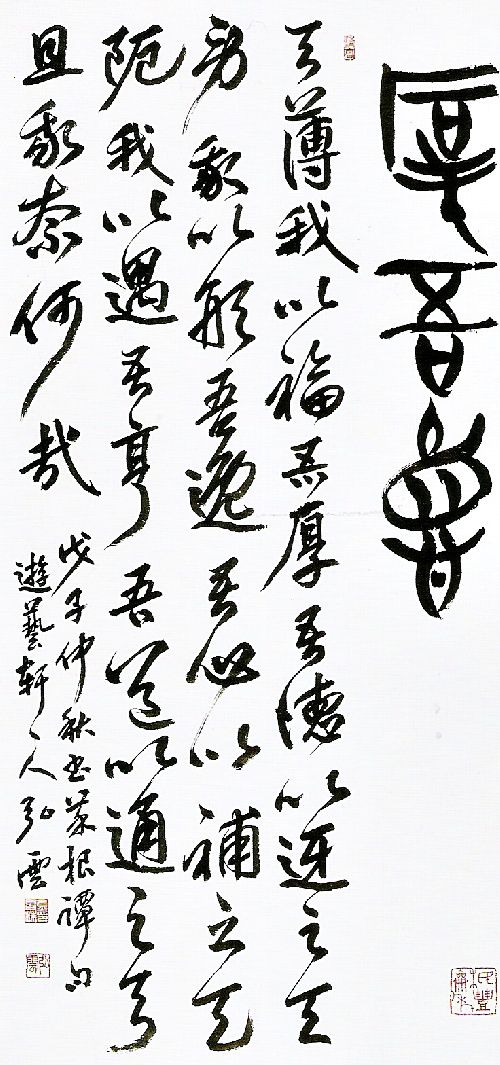 厚吾
天薄我以福吾厚吾德以迓之天
勞我以形吾逸吾心以補之天
阨我以遇吾亨吾道以通之天
且我奈何哉
戊子仲秋書菜根譚句
遊藝軒主人弘雲